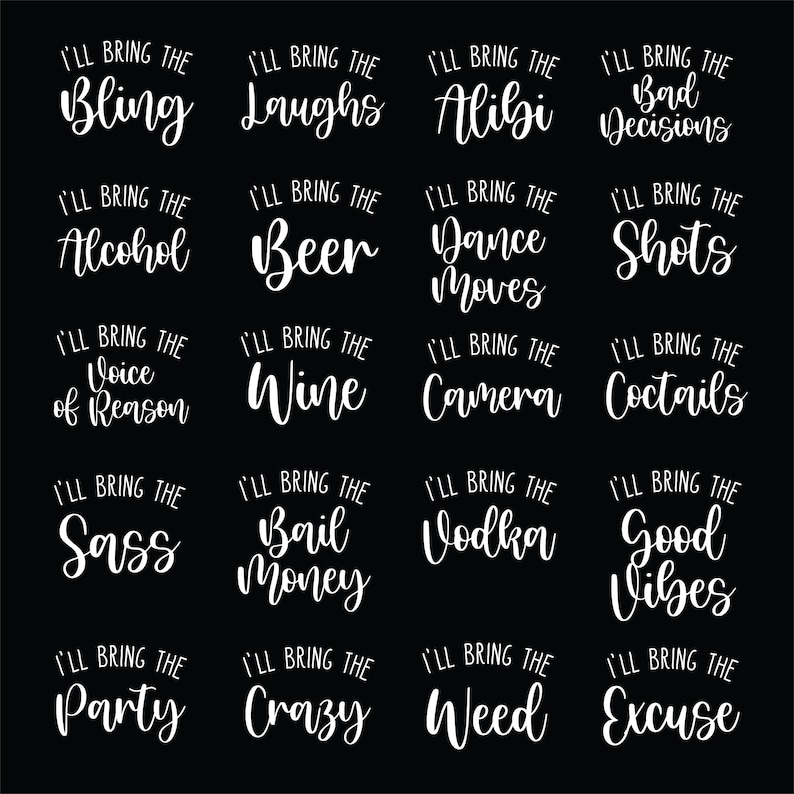 I'LL BRING THE
Bling
I'LL BRING THE
Laughs
I'LL BRING THE
Alibi
I'LL BRING THE
Bad
Decisions
I'LL BRING THE
Alcohol
I'LL BRING THE
Beer
I'LL BRING THE
Dance
Moves
I'LL BRING THE
Shots
I'LL BRING THE
Voice
of Reason
I'LL BRING THE
Wine
I'LL BRING THE
Camera
I'LL BRING THE
Coctails
I'LL BRING THE
Sass
I'LL BRING THE
Bail
Money
I'LL BRING THE
Vodka
I'LL BRING THE
Good
Vibes
I'LL BRING THE
Party
I'LL BRING THE
Crazy
I'LL BRING THE
Weed
I'LL BRING THE
Excuse